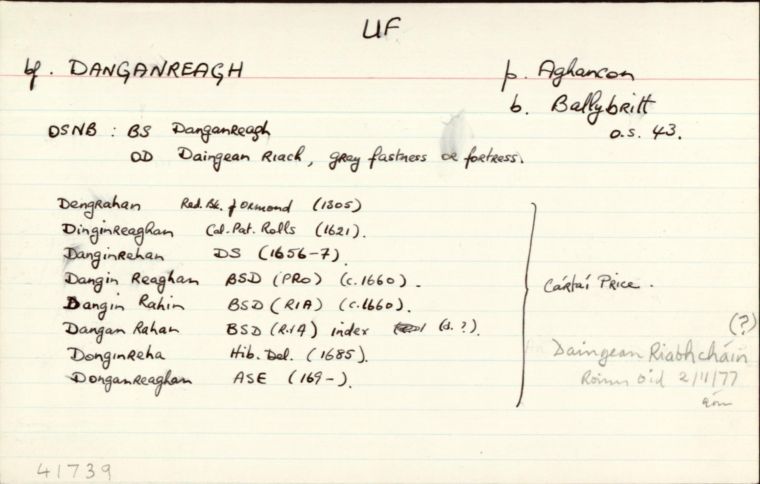 UF
bf. DANGANREAGH
p. Aghancon
b. Ballybritt
O.S. 43.
OSNB : BS Danganreagh
OD Daingean Riach, gray fastness or fortress.
Dengrahan Red. Bk. of Ormond (1305)
Dinginreaghan Cal. Pat. Rolls (1621).
Danginrehan DS (1656-7).
Dangin Reaghan BSD (PRO) (c.1660).
Dangin Rahin BSD (RIA) (c.1660).
Dangan Rahan BSD (RIA) index (d. ?).
Donginreha Hib. Del. (1685).
Donganreaghan ASE (169-).
Cártaí Price.
(?)
Daingean Riabhcháin
2/11/77
41739